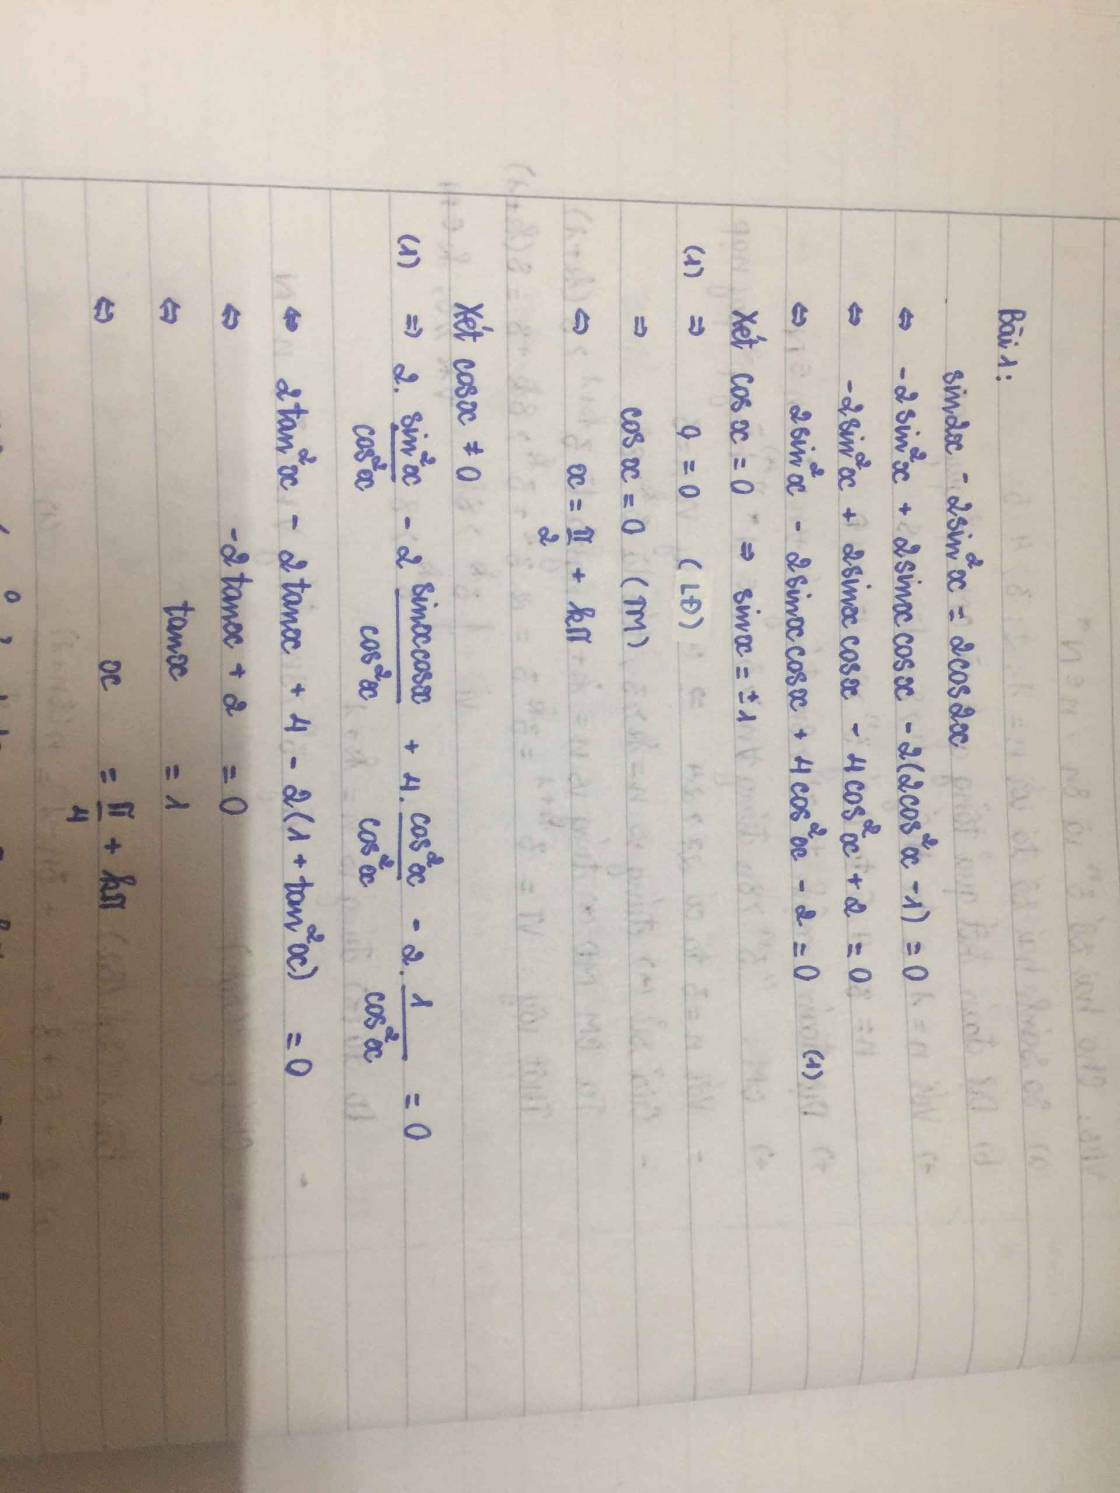 Bài 1:
sin2x - 2sin²x = 2cos2x
⇔ -2sin²x + 2sinxcosx - 2(2cos²x - 1) = 0
⇔ -2sin²x + 2sinxcosx - 4cos²x + 2 = 0
⇔ 2sin²x - 2sinxcosx + 4cos²x - 2 = 0 (1)
Xét cosx = 0 ⇒ sinx = ±1
(1) ⇒ 0 = 0 (LĐ)
⇒ cosx = 0 (TM)
⇔ x = π/2 + kπ
Xét cosx ≠ 0
(1) ⇒ 2. sin²x/cos²x - 2 sinxcosx/cos²x + 4. cos²x/cos²x - 2. 1/cos²x = 0
⇔ 2tan²x - 2tanx + 4 - 2(1 + tan²x) = 0
⇔ -2tanx + 2 = 0
⇔ tanx = 1
⇔ x = π/4 + kπ